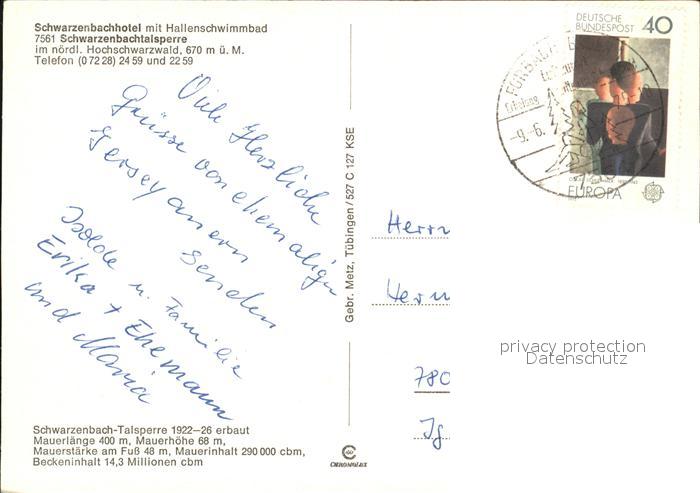 Schwarzenbachhotel mit Hallenschwimmbad
7561 Schwarzenbachtalsperre
im nördl. Hochschwarzwald, 670 m ü. M.
Telefon (0 72 28) 24 59 und 22 59
Viele Herzliche
Grüsse von ehemaligen
Jersey anern
senden
Isolde u. Familie
Erika + Ehemann
und Maria
Schwarzenbach-Talsperre 1922–26 erbaut
Mauerlänge 400 m, Mauerhöhe 68 m,
Mauerstärke am Fuß 48 m, Mauerinhalt 290 000 cbm,
Beckeninhalt 14,3 Millionen cbm
Gebr. Metz, Tübingen / 527 C 127 KSE
CHROMOLUX
DEUTSCHE
BUNDESPOST 40
EUROPA
FORBACH
Erholung
-9.-6.
Herrn
780
privacy protection
Datenschutz